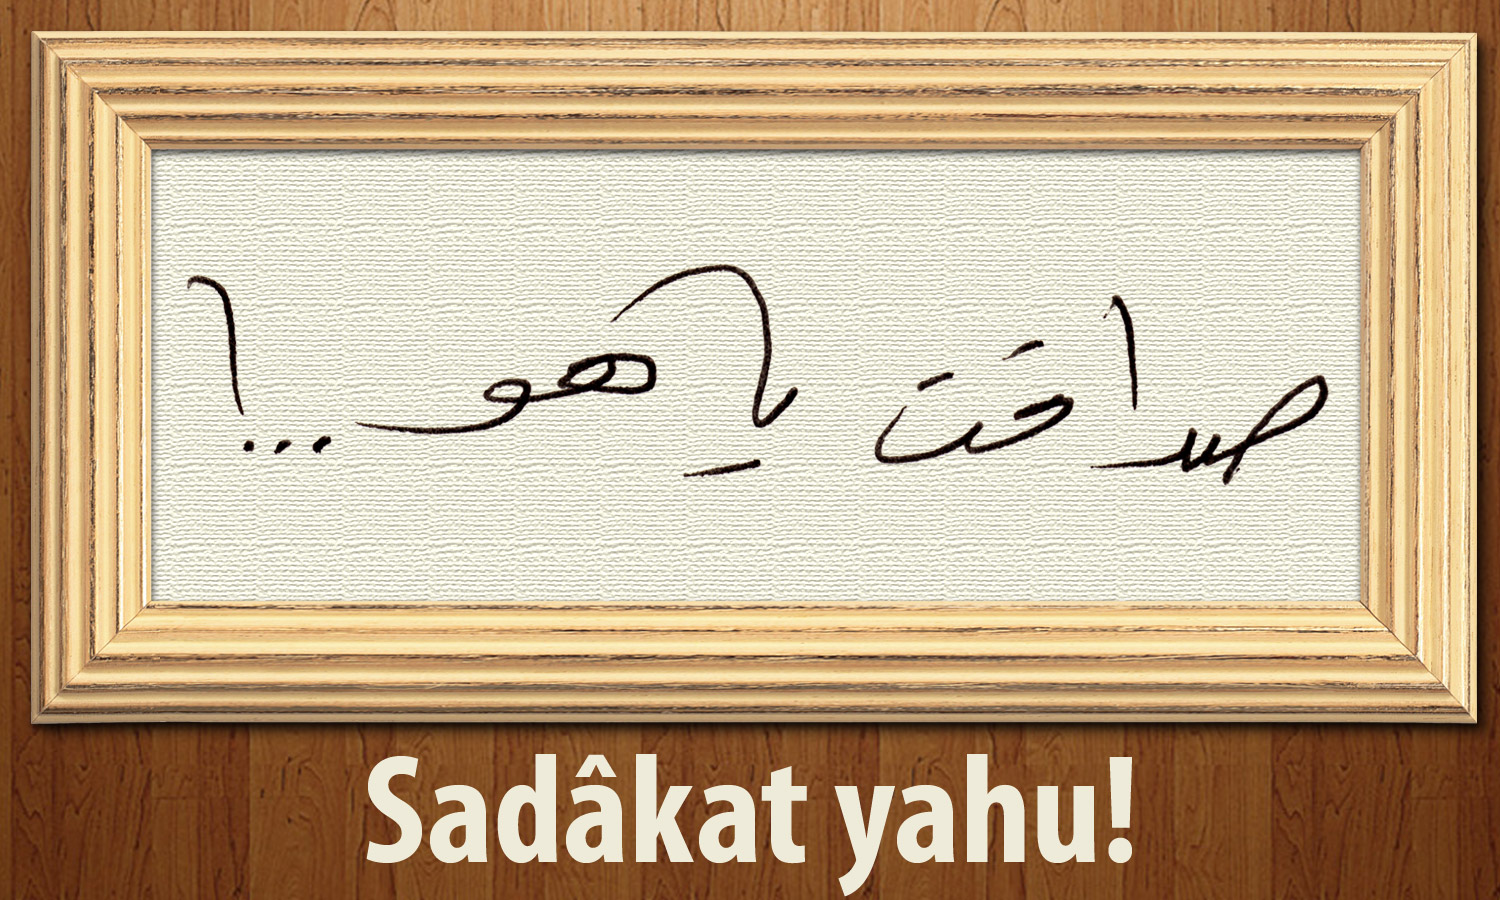 صداقت ياهو...!
Sadâkat yahu!